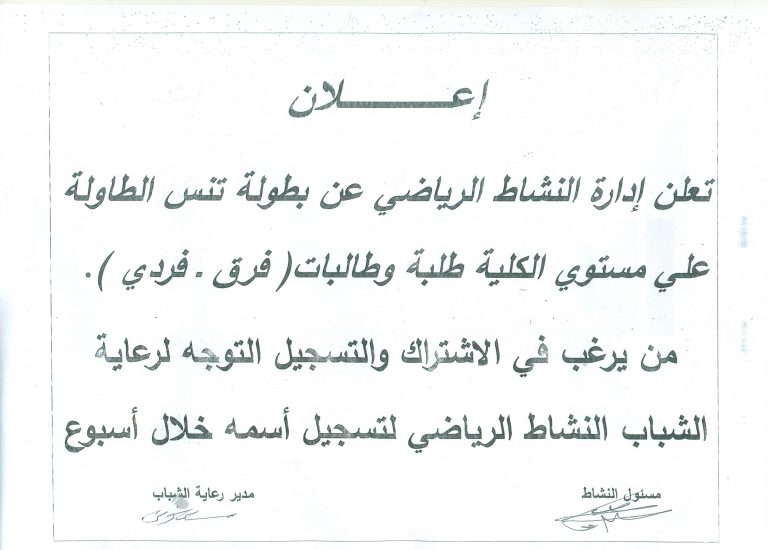 إعـــــــــلان
تعلن إدارة النشاط الرياضي عن بطولة تنس الطاولة
علي مستوي الكلية طلبة وطالبات( فرق ـ فردي ).
من يرغب في الاشتراك والتسجيل التوجه لرعاية
الشباب النشاط الرياضي لتسجيل أسمه خلال أسبوع
مسئول النشاط
مدير رعاية الشباب